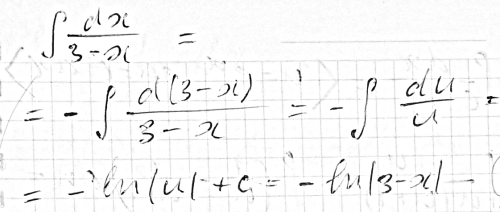 ∫ dx/(3-x) =
= - ∫ d(3-x)/(3-x) = - ∫ du/u =
= - ln|u| + c = - ln|3-x| -